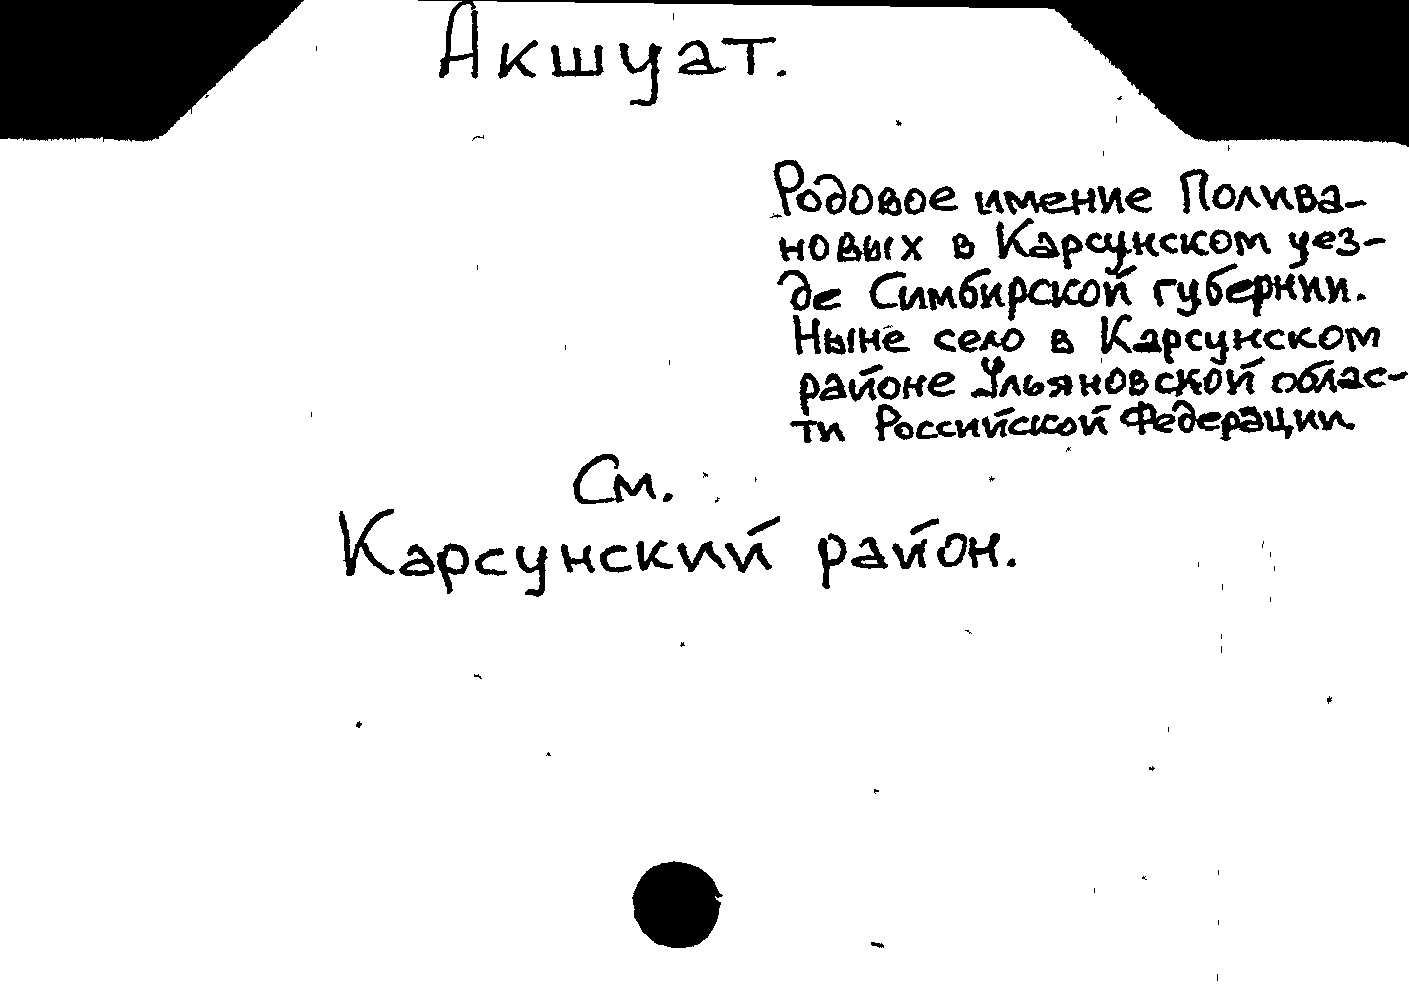 Акшуат.
Родовое имение Полива-
новых в Карсунском уез-
де Симбирской губернии.
Ныне село в Карсунском
районе Ульяновской облас-
ти Российской Федерации.
См.
Карсунский район.